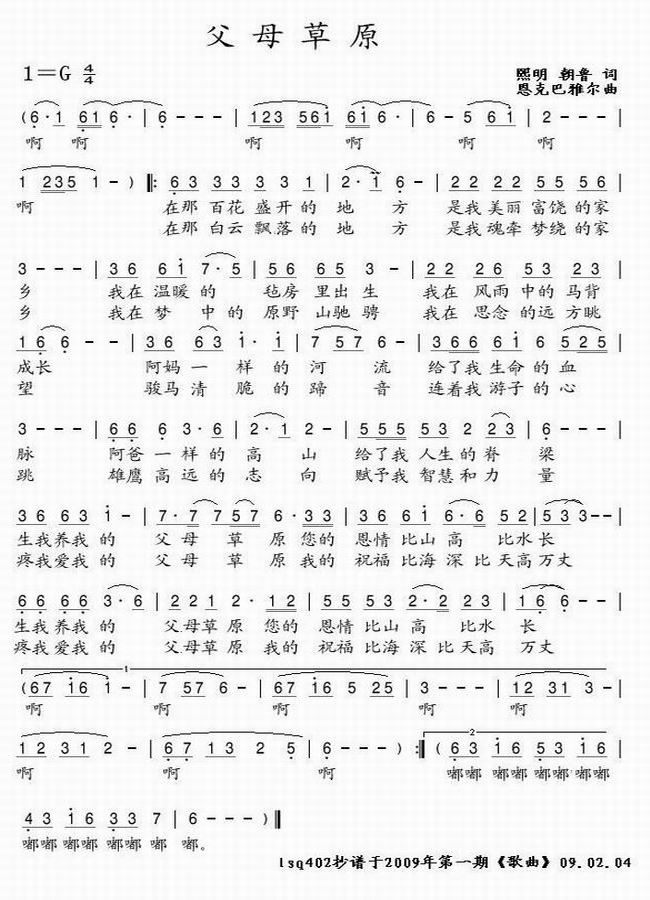 父母草原
1=G 4/4
熙明 朝鲁 词
恩克巴雅尔 曲
(6·1 61 6· | 6 - - - | 123 561 61 6· | 6 - 5 61 | 2 - - - |
啊 啊 啊 啊 啊 啊
1 235 1 - ) ‖: 63 33 33 3 1 | 2·1 6 - | 22 22 55 56 |
啊 在那 百花 盛开 的 地 方 是我 美丽 富饶 的家
在那 白云 飘落 的 地 方 是我 魂牵 梦绕 的家
3 - - - | 36 61 7·5 | 56 65 3 - | 22 26 53 23 |
乡 我在 温暖 的 毡房 里出 生 我在 风雨 中的 马背
乡 我在 梦 中 的 原野 山驰 骋 我在 思念 的远 方眺
16 6 - - | 36 63 1·1 | 7 57 6 - | 366 661 6 525 |
成长 阿妈 一 样 的 河 流 给了我 生命 的 血
望 骏马 清 脆 的 蹄 音 连着我 游子 的 心
3 - - - | 66 6 3·6 | 2·1 2 - | 555 53 2 23 | 6 - - - |
脉 阿爸 一 样 的 高 山 给了我 人生 的 脊 梁
跳 雄鹰 高 远 的 志 向 赋予我 智慧 和 力 量
36 63 1 - | 7·7 7 757 6·33 | 36 61 6·6 52 | 53 3 - - |
生我 养我 的 父 母 草 原 您的 恩情 比山 高 比水 长
疼我 爱我 的 父 母 草 原 我的 祝福 比海 深 比 天高 万丈
66 66 3·6 | 22 21 2·12 | 55 53 2·3 22 | 16 6 - - |
生我 养我 的 父母 草 原 您的 恩情 比山 高 比水 长
疼我 爱我 的 父母 草 原 我的 祝福 比海 深 比天高 万丈
1
(67 16 1 - | 7 57 6 - | 67 16 5 25 | 3 - - - | 12 31 7 - |
啊 啊 啊 啊 啊
2
12 31 2 - | 67 13 2 5 | 6 - - - ) :‖ (63 16 53 16 |
啊 啊 啊 嘟嘟 嘟嘟 嘟嘟 嘟嘟
43 16 33 7 | 6 - - - ) ‖
嘟嘟 嘟嘟 嘟嘟 嘟。
lsq402抄谱于2009年第一期《歌曲》09.02.04